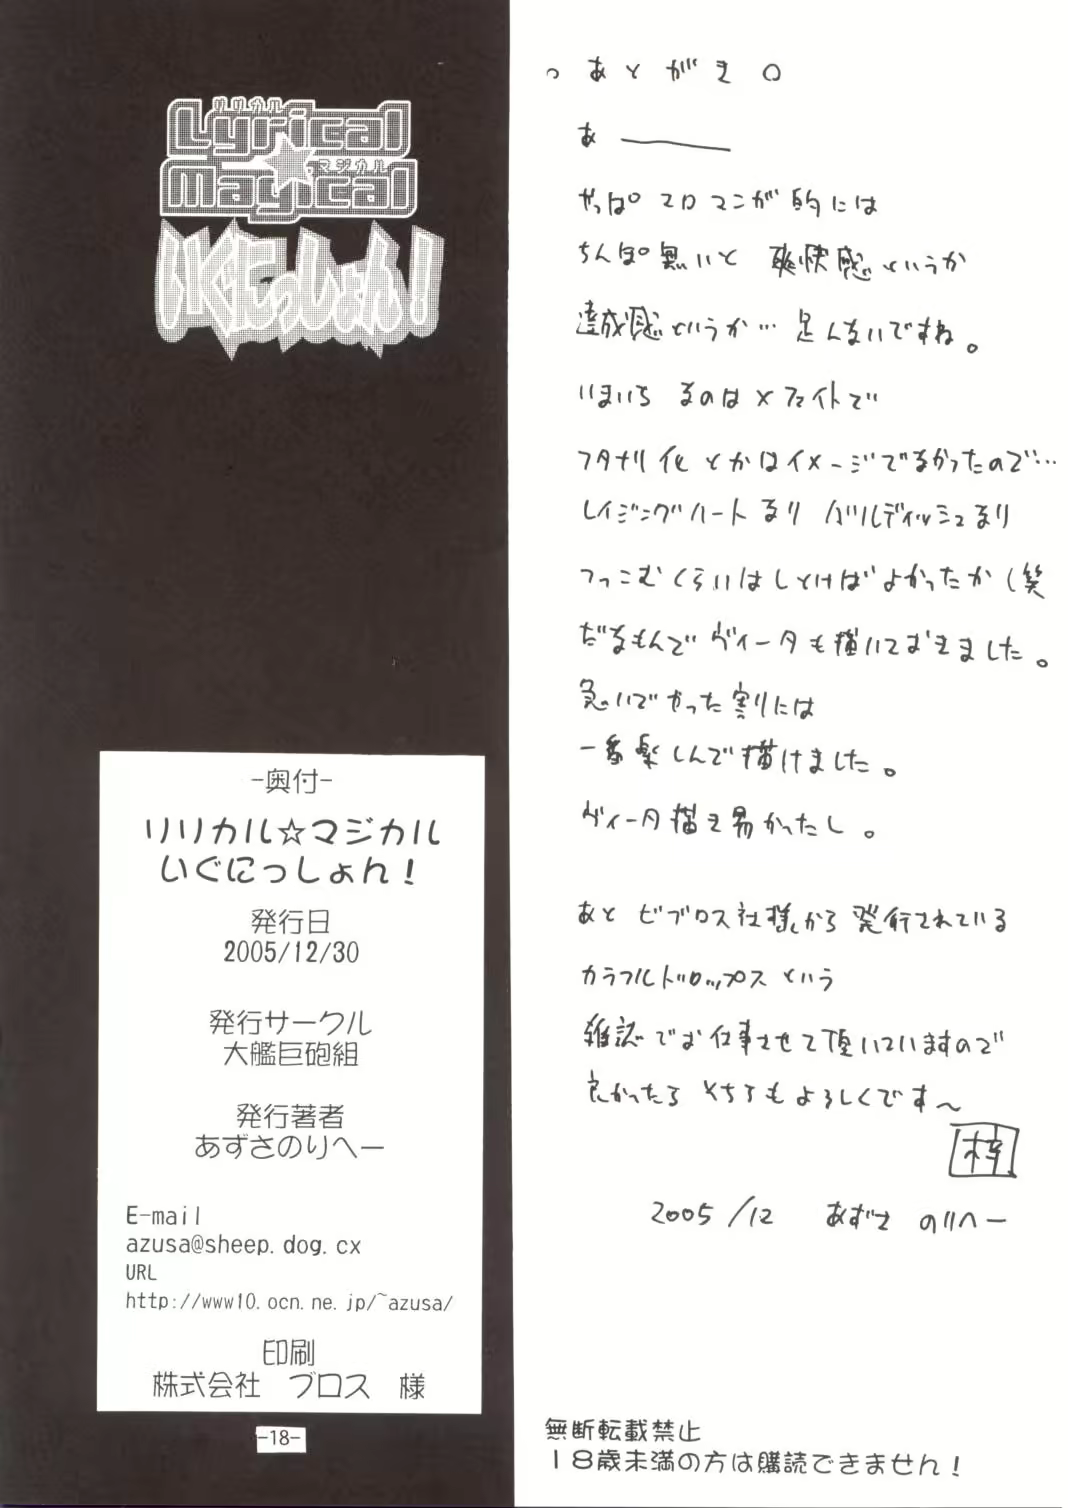 リリカル
Lyrical
マジカル
Magical
いぐにっしょん!
-奥付-
リリカル☆マジカル
いぐにっしょん!
発行日
2005/12/30
発行サークル
大艦巨砲組
発行著者
あずさのりへー
E-mail
azusa@sheep.dog.cx
URL
http://www10.ocn.ne.jp/~azusa/
印刷
株式会社 ブロス 様
-18-
。あとがき。
あ――
やっぱエロマンガ的には
ちんぽ無いと 爽快感というか
達成感というか… 足んないですね。
いまいち なのは×フェイトで
フタナリ化とかはイメージでなかったので…
レイジングハートなり バルディッシュなり
つっこむくらいはしとけばよかったか(笑
だもんでヴィータも描いておきました。
急いでやった割りには
一番楽しんで描けました。
ヴィータ描き易かったし。
あと ビブロス社様から発行されている
カラフルドロップスという
雑誌でお仕事させて頂いていますので
良かったら そちらもよろしくです~
梓
2005/12 あずさ のりへー
無断転載禁止
18歳未満の方は購読できません!